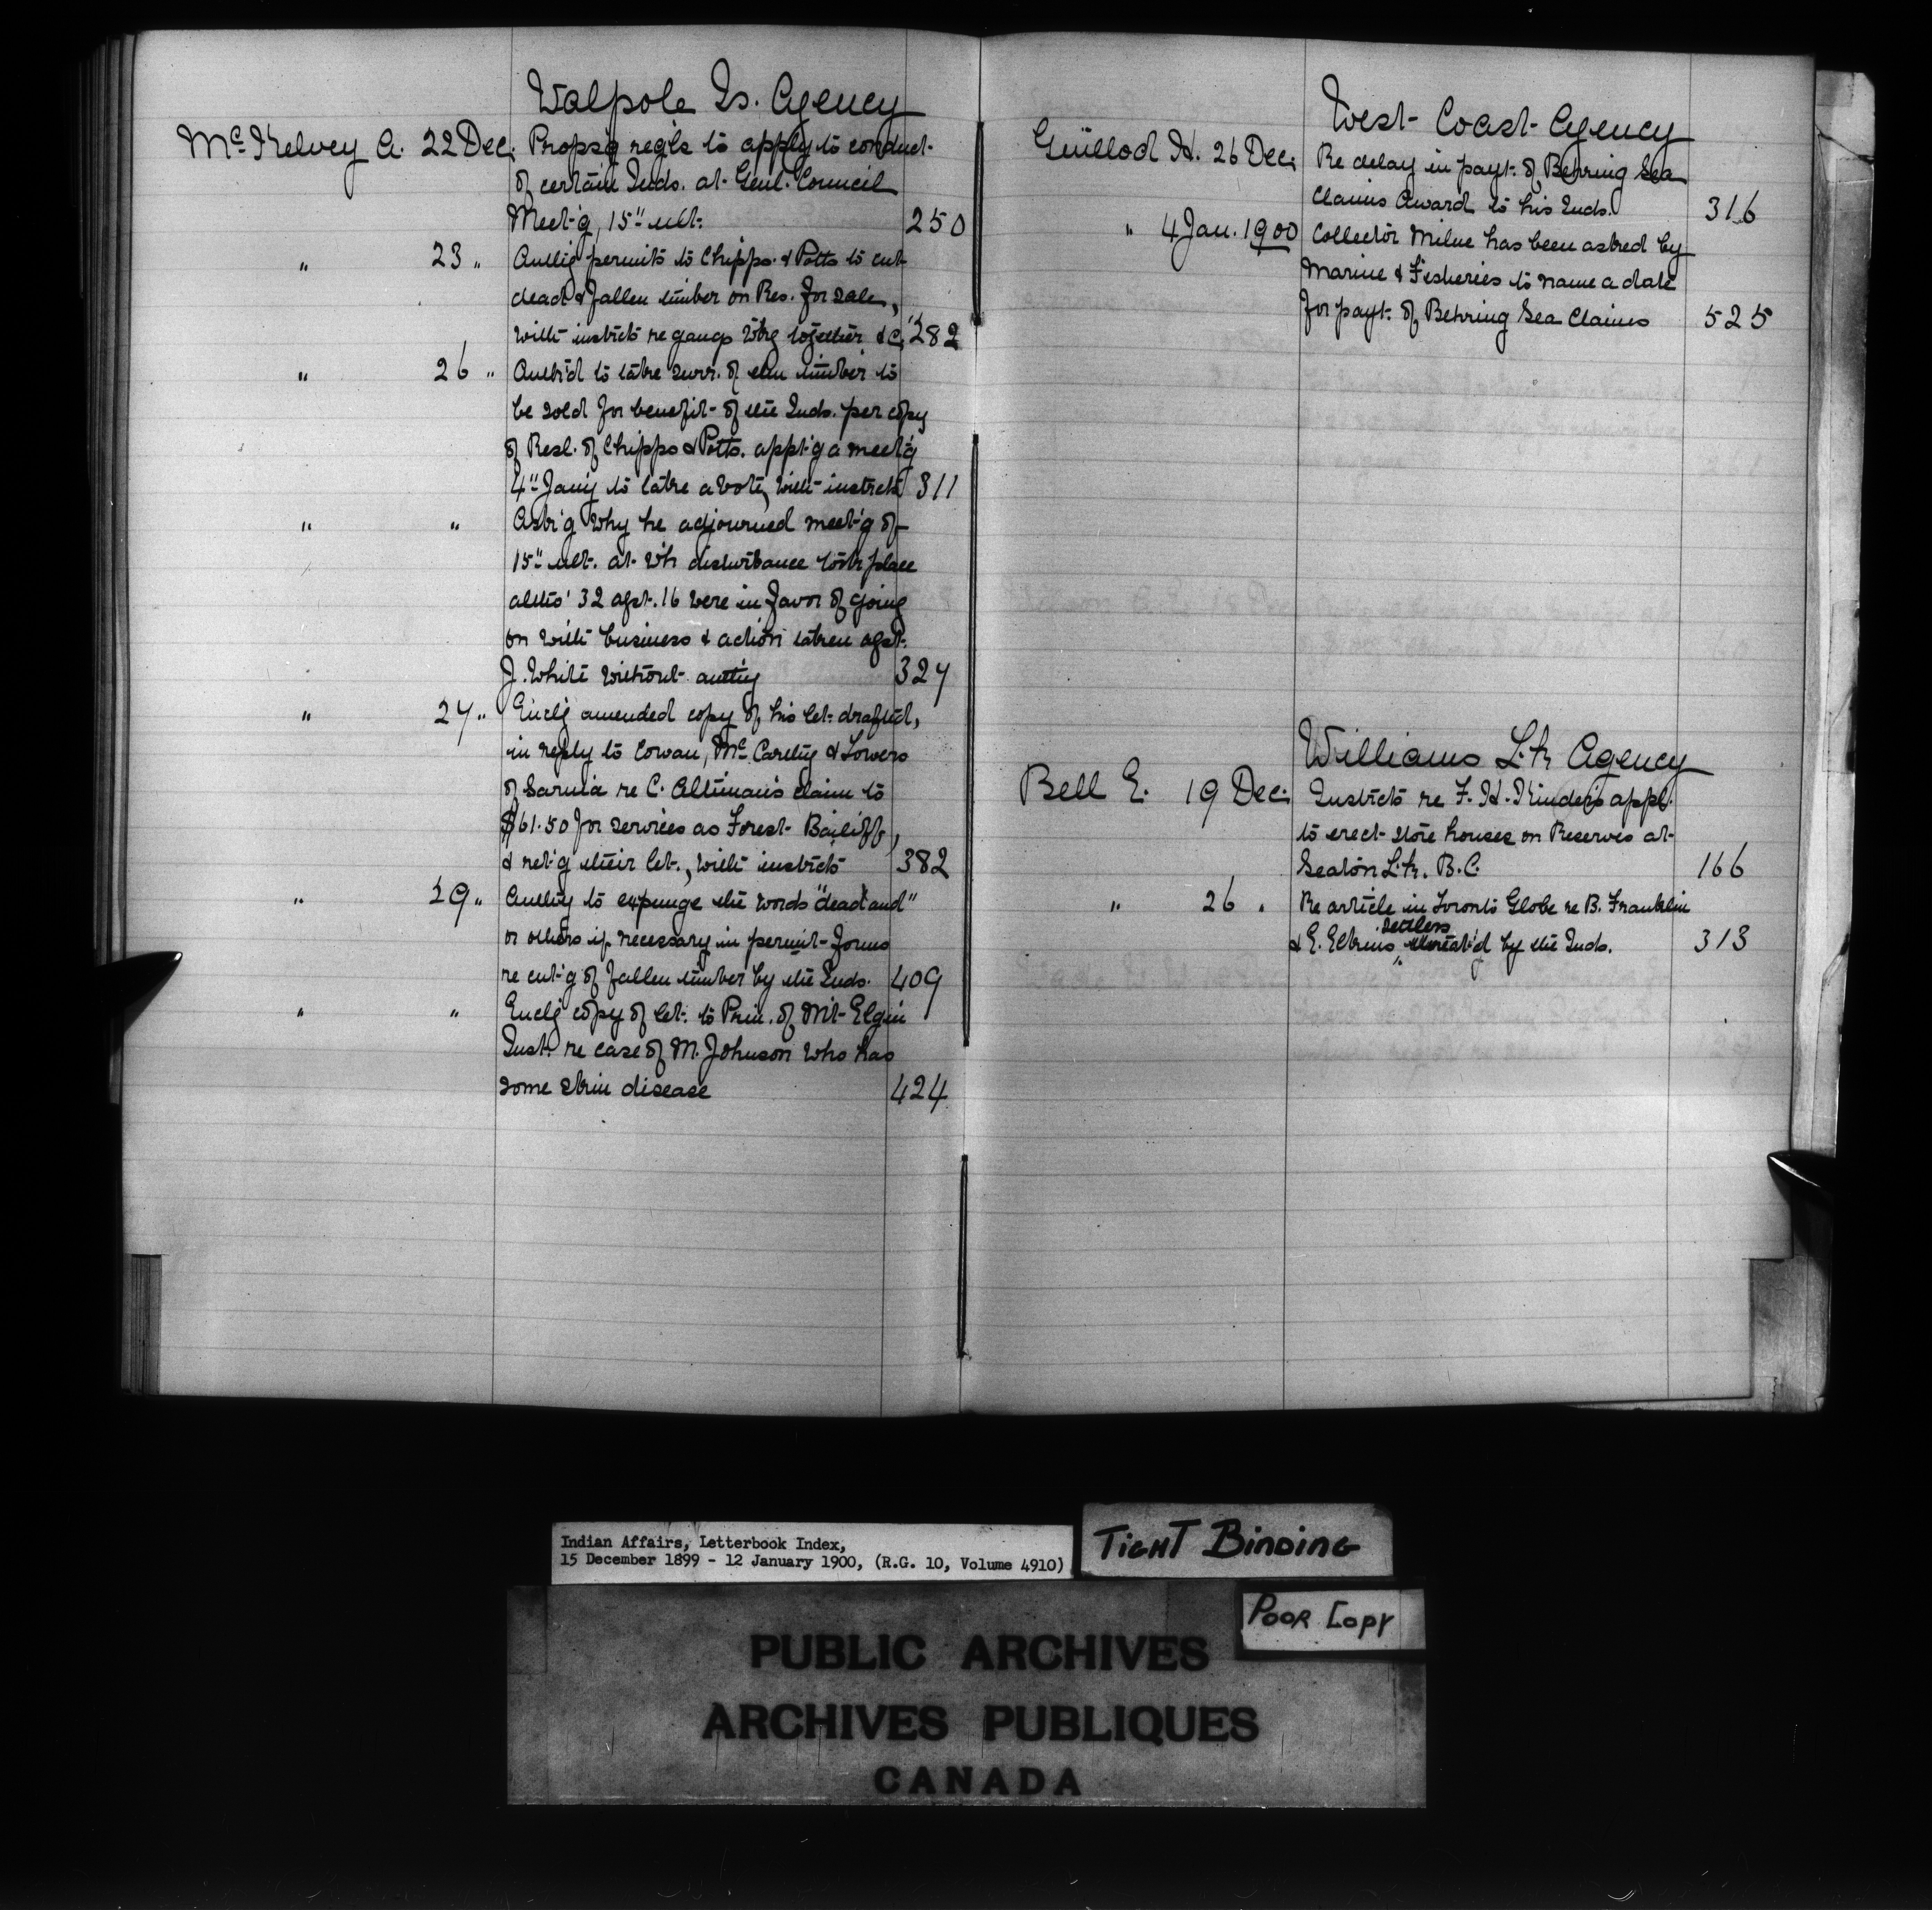 Walpole Is. Agency
McKelvey A. 22 Dec. Propsg regls to apply to conduct
of certain Inds. at Genl. Council
Meet'g, 15" ult. 250
" 23 " Authg permits to Chipps. & Potts to cut
dead & fallen timber on Res. for sale,
with instrcts re gangs wkg together &c. 282
" 26 " Auth'd to take surr. of elm timber to
be sold for benefit of the Inds. per copy
of Resl. of Chipps & Potts. appt'g a meet'g
4" Jany to take a vote, with instrcts 311
" " Ask'g why he adjourned meet'g of
15" ult. at wh disturbance took place
altho' 32 agst. 16 were in favor of going
on with business & action taken agst.
J. White without authy 327
" 27 " Enclg amended copy of his let. drafted,
in reply to Cowan, McCarthy & Towers
of Sarnia re C. Altiman's claim to
$61.50 for services as Forest Bailiff,
& ret'g their let., with instrcts 382
" 29 " Authg to expunge the words "dead and"
or others if necessary in permit forms
re cut'g of fallen timber by the Inds. 409
" " Enclg copy of let. to Prin. of Mt Elgin
Inst. re case of M. Johnson who has
some skin disease 424
West Coast Agency
Guillod H. 26 Dec. Re delay in payt. of Behring Sea
Claims Award to his Inds. 316
" 4 Jan. 1900 Collector Milne has been asked by
Marine & Fisheries to name a date
for payt. of Behring Sea Claims 525
Williams Lk Agency
Bell E. 19 Dec. Instrcts re F. H. Kinder's appl.
to erect store houses on Reserves at
Seaton Lk. B.C. 166
" 26 " Re article in Toronto Globe re B. Franklin
settlers
& E. Elkins, threat'd by the Inds. 313
Indian Affairs, Letterbook Index,
15 December 1899 - 12 January 1900, (R.G. 10, Volume 4910)
TIGHT BINDING
POOR COPY
PUBLIC ARCHIVES
ARCHIVES PUBLIQUES
CANADA